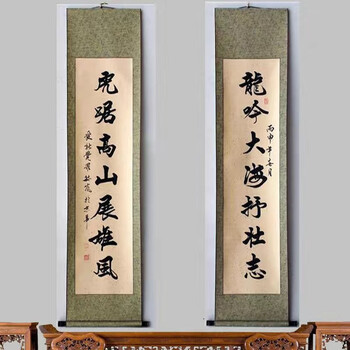 龍吟大海抒壮志
丙申年春月
虎踞高山展雄風